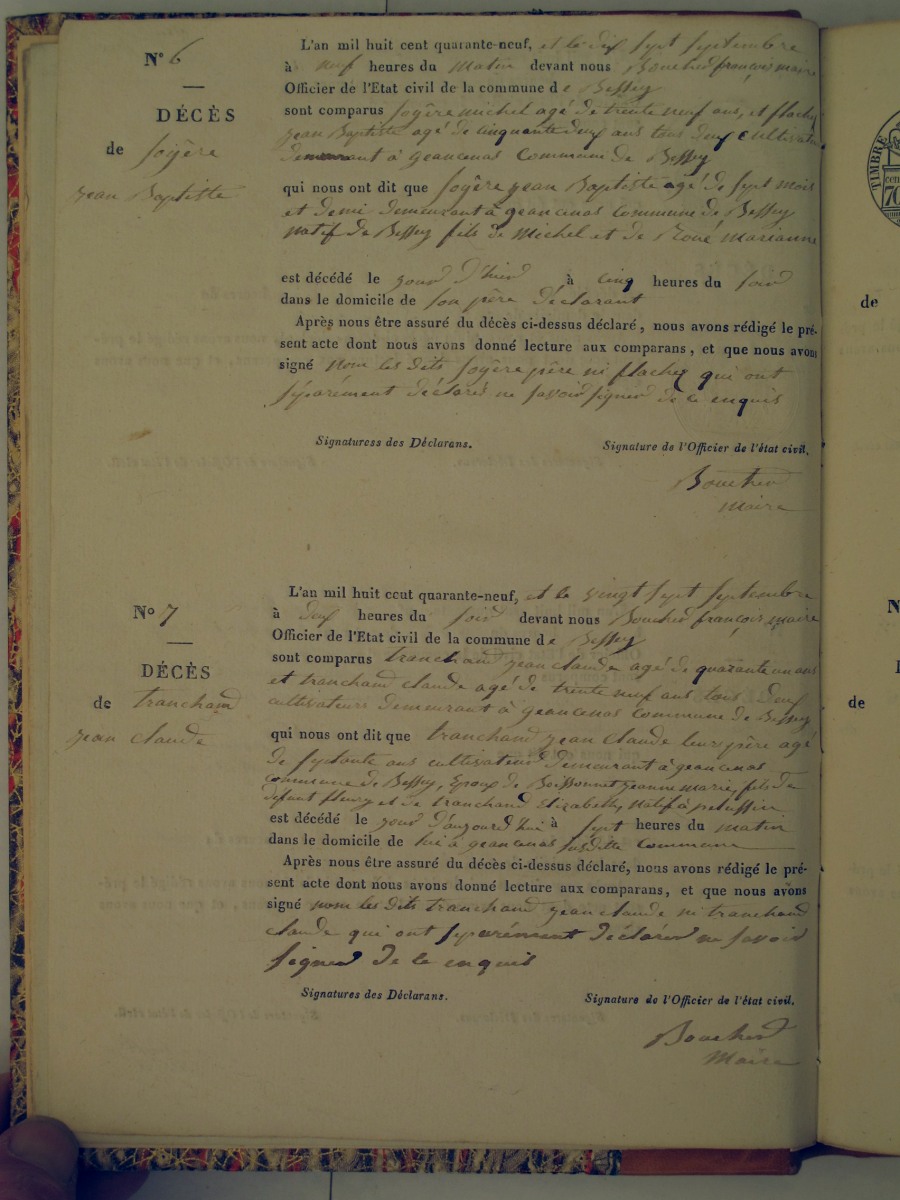 N° 6
DÉCÈS
de soyère
jean Baptiste
L'an mil huit cent quarante-neuf, et le dix sept septembre
à neuf heures du matin devant nous Boucher françois maire
Officier de l'Etat civil de la commune de Bessey
sont comparus soyère michel agé de trente neuf ans, et flachez
jean Baptiste agé de cinquante deux ans tous deux cultivat
demeurant à geancenas commune de Bessey
qui nous ont dit que soyère jean Baptiste agé de sept mois
et demi demeurant à geancenas commune de Bessey
natif de Bessey fils de michel et de Roué marianne
est décédé le jour d'hier à cinq heures du soir
dans le domicile de son père déclarant
Après nous être assuré du décès ci-dessus déclaré, nous avons rédigé le pré-
sent acte dont nous avons donné lecture aux comparans, et que nous avons
signé nom les dits soyère père ni flachez qui ont
séparément déclarés ne savoir signer de ce enquis
Signaturess des Déclarans.
Signature de l'Officier de l'état civil.
Boucher
maire
N° 7
DÉCÈS
de tranchand
jean claude
L'an mil huit ceut quarante-neuf, et le vingt sept septembre
à deux heures du soir devant nous Boucher françois maire
Officier de l'Etat civil de la commune de Bessey
sont comparus tranchand jean claude agé de quarante un ans
et tranchand claude agé de trente neuf ans tous deux
cultivateurs demeurant à geancenas commune de Bessey
qui nous ont dit que tranchand jean claude leurs père agé
de septante ans cultivateur demeurant à geancenas
commune de Bessey, Epoux de Boissonnet jeanne marie, fils de
défunt fleury et de tranchand Elizabeth, natif à pelussin
est décédé le jour d'aujourd'hui à sept heures du matin
dans le domicile de lui à geancenas susditte commune
Après nous être assuré du décès ci-dessus déclaré, nous avons rédigé le pré-
sent acte dont nous avons donné lecture aux comparans, et que nous avons
signé nom les dits tranchand jean claude ni tranchand
claude qui ont séparément déclarés ne savoir
signer de ce enquis
Signatures des Déclarans.
Signature de l'Officier de l'état civil.
Boucher
Maire
TIMBRE
70
de
N
de